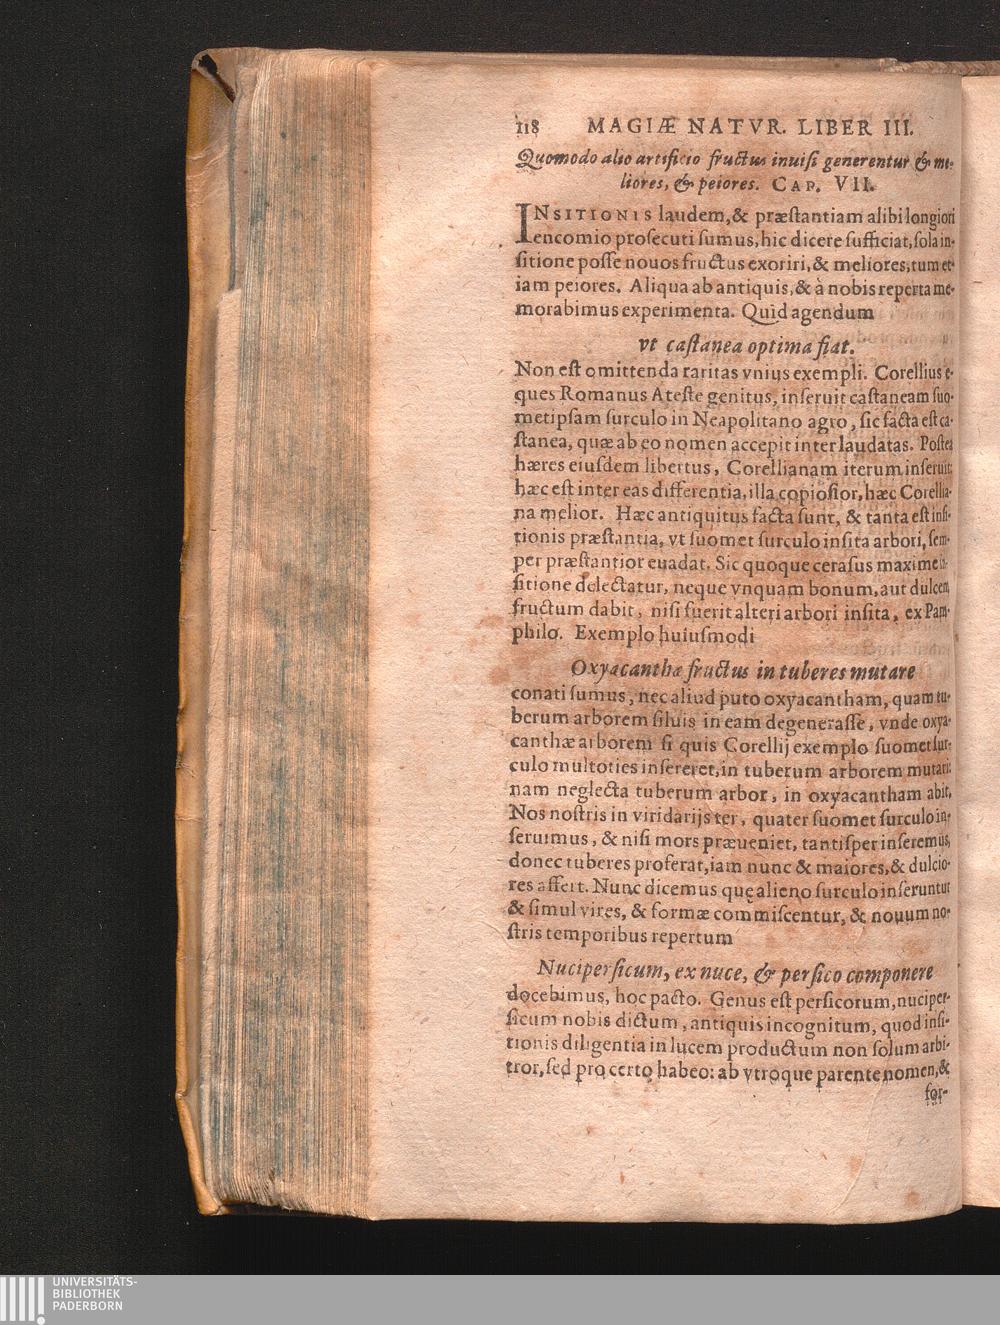 118 MAGIÆ NATVR. LIBER III.
Quomodo alio artificio fructus inuisi generentur & me-
liores, & peiores. CAP. VII.
INSITIONIS laudem, & præstantiam alibi longiori
encomio prosecuti sumus, hic dicere sufficiat, sola in-
sitione posse nouos fructus exoriri, & meliores, tum et-
iam peiores. Aliqua ab antiquis, & à nobis reperta me-
morabimus experimenta. Quid agendum
vt castanea optima fiat.
Non est omittenda raritas vnius exempli. Corellius e-
ques Romanus Ateste genitus, inseruit castaneam suo-
metipsam surculo in Neapolitano agro, sic facta est ca-
stanea, quæ ab eo nomen accepit inter laudatas. Postea
hæres eiusdem libertus, Corellianam iterum inseruit:
hæc est inter eas differentia, illa copiosior, hæc Corellia-
na melior. Hæc antiquitus facta sunt, & tanta est insi-
tionis præstantia, vt suomet surculo insita arbori, sem-
per præstantior euadat. Sic quoque cerasus maxime in-
sitione delectatur, neque vnquam bonum, aut dulcem
fructum dabit, nisi fuerit alteri arbori insita, ex Pam-
philo. Exemplo huiusmodi
Oxyacanthæ fructus in tuberes mutare
conati sumus, nec aliud puto oxyacantham, quam tu-
berum arborem siluis in eam degenerasse, vnde oxya-
canthæ arborem si quis Corellij exemplo suomet sur-
culo multoties insereret, in tuberum arborem mutari:
nam neglecta tuberum arbor, in oxyacantham abit,
Nos nostris in viridarijs ter, quater suomet surculo in-
seruimus, & nisi mors præueniet, tantisper inseremus,
donec tuberes proferat, iam nunc & maiores, & dulcio-
res affert. Nunc dicemus quę alieno surculo inseruntur
& simul vires, & formæ commiscentur, & nouum no-
stris temporibus repertum
Nucipersicum, ex nuce, & persico componere
docebimus, hoc pacto. Genus est persicorum, nuciper-
sicum nobis dictum, antiquis incognitum, quod insi-
tionis diligentia in lucem productum non solum arbi-
tror, sed pro certo habeo: ab vtroque parente nomen, &
for-
UNIVERSITÄTS-
BIBLIOTHEK
PADERBORN